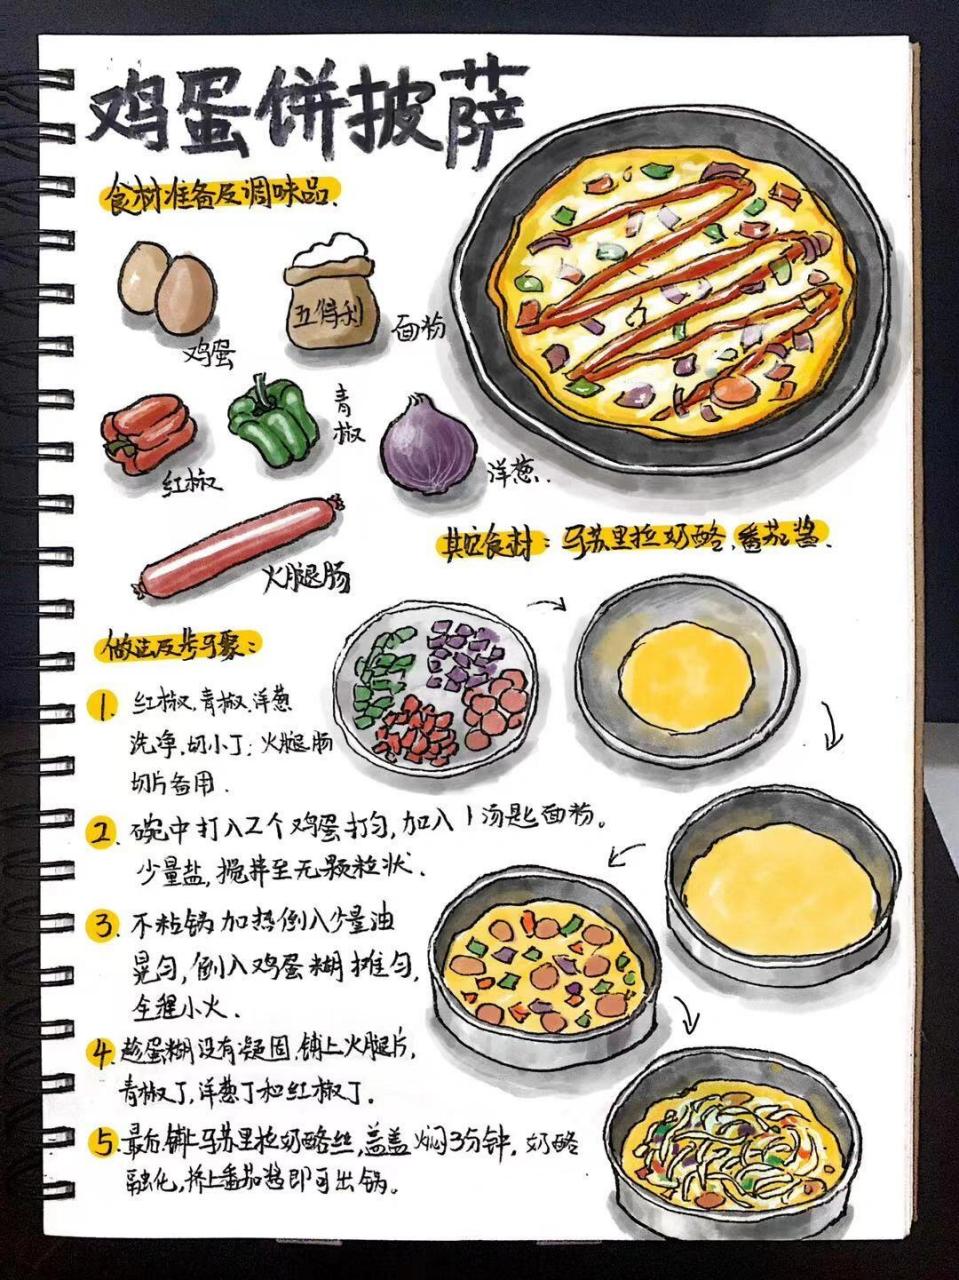 鸡蛋饼披萨
食材准备及调味品.
鸡蛋
五得利
面粉
红椒
青椒
洋葱.
火腿肠
其它食材：马苏里拉奶酪、番茄酱.
做法及步骤：
1. 红椒,青椒.洋葱
洗净,切小丁；火腿肠
切片备用.
2. 碗中打入2个鸡蛋打匀,加入1汤匙面粉。
少量盐,搅拌至无颗粒状.
3. 不粘锅加热倒入少量油
晃匀,倒入鸡蛋糊摊匀,
全程小火.
4. 趁蛋糊没有凝固,铺上火腿片,
青椒丁,洋葱丁和红椒丁.
5. 最后铺上马苏里拉奶酪丝,盖盖焖3分钟,奶酪
融化,挤上番茄酱即可出锅。